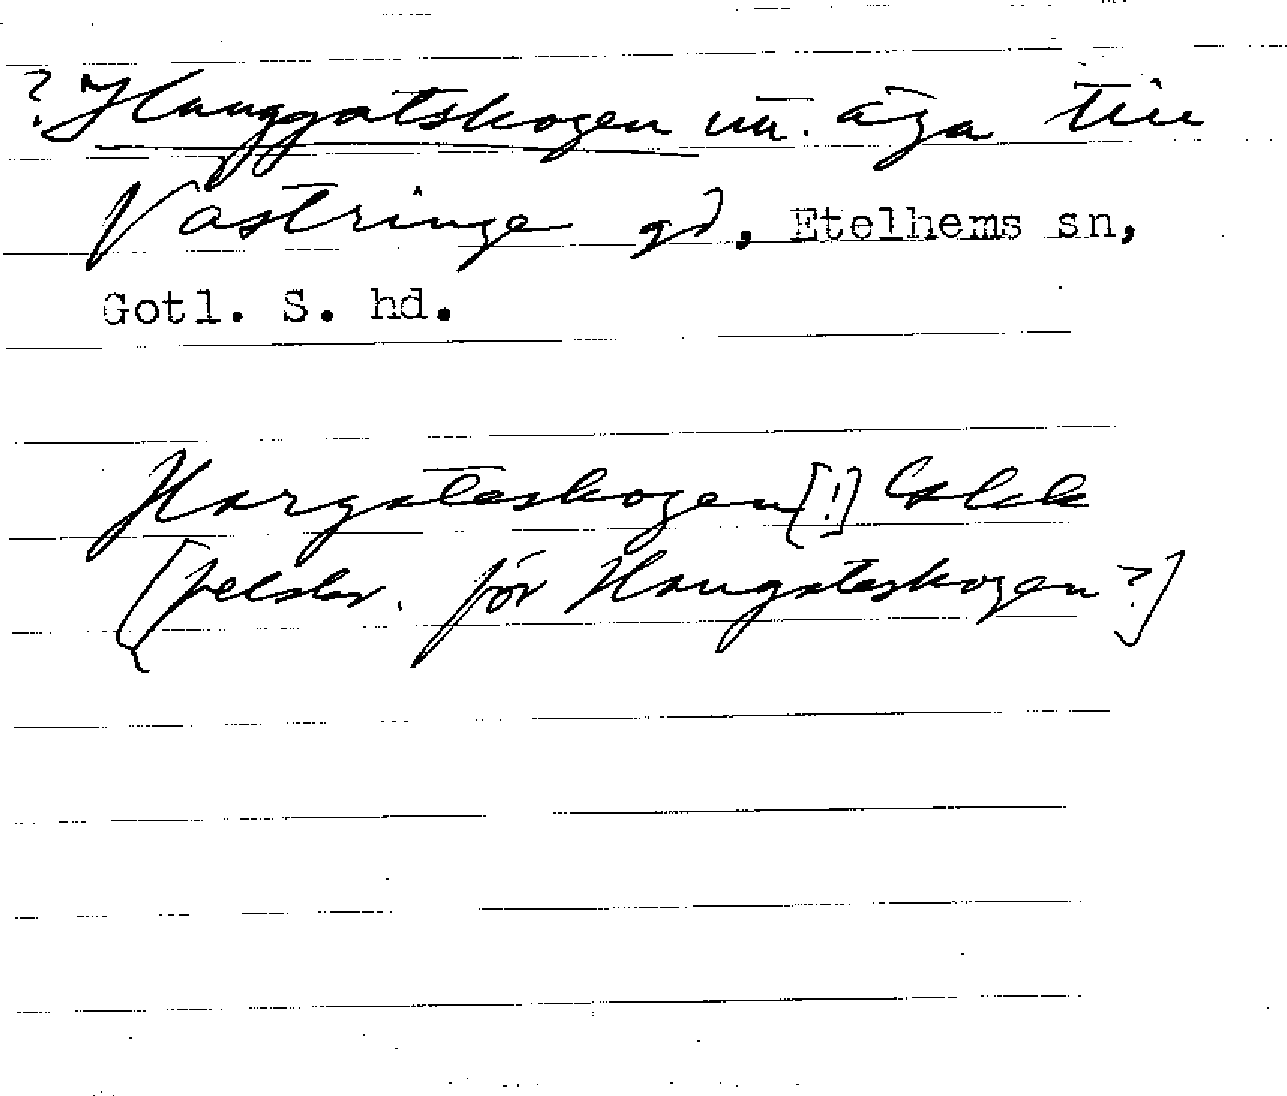 ?Hauggatskogen un. äga till
Västringe gd, Etelhems sn,
Gotl. S. hd.
Hargateskogen [!] Cakk
[felskr. för Haugateskogen?]